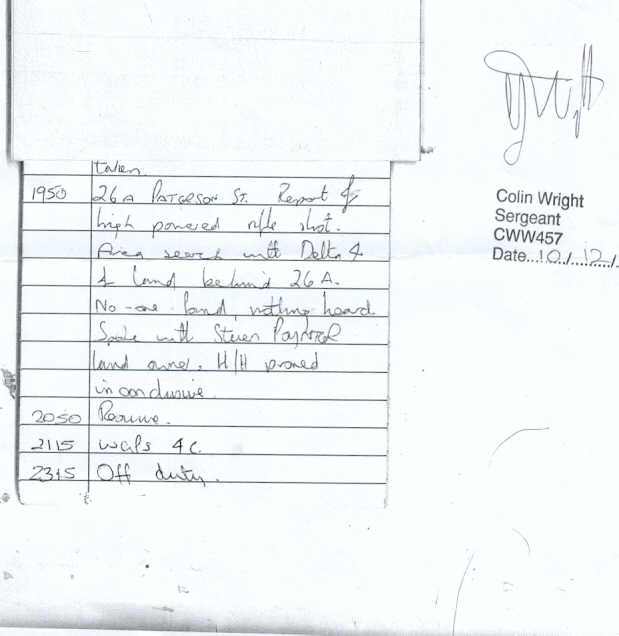 taken.
1950 26A PATERSON ST. Report of
high powered rifle shot.
Area search with Delta 4
& land behind 26A.
No-one found, nothing heard
Spoke with Steven
land owner. H/H proved
inconclusive.
2050 Resume.
2115 4C.
2315 Off duty.
Colin Wright
Sergeant
CWW457
Date...10/...12/.